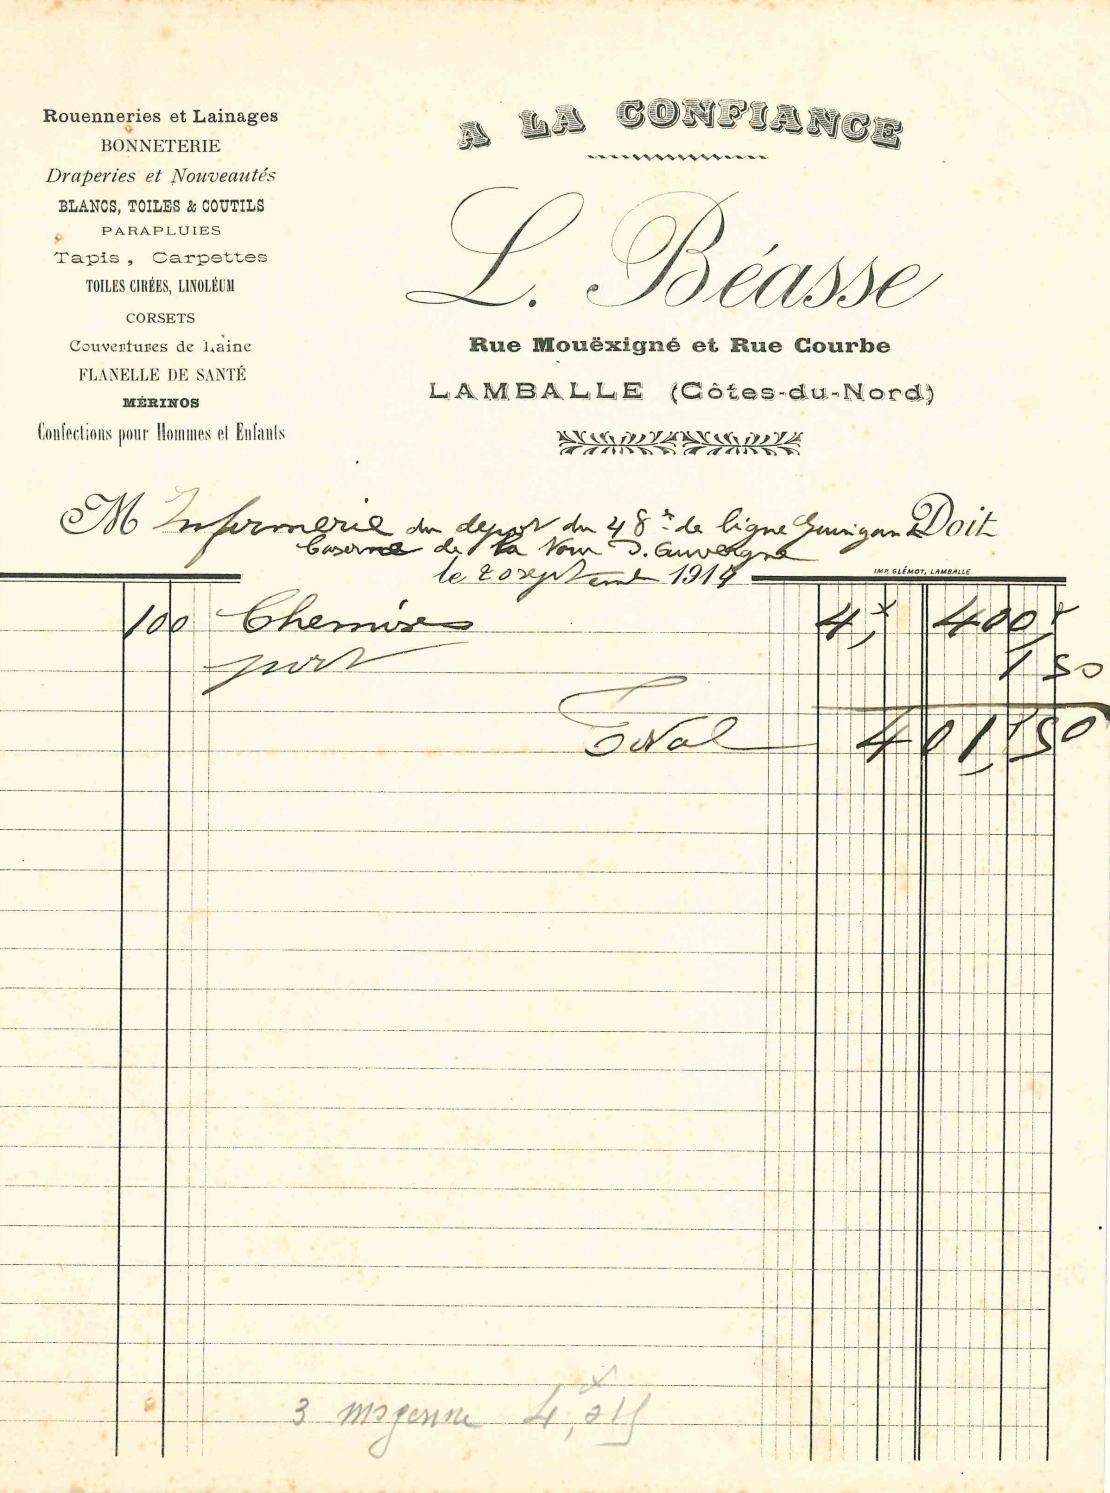 Rouenneries et Lainages
BONNETERIE
Draperies et Nouveautés
BLANCS, TOILES & COUTILS
PARAPLUIES
Tapis, Carpettes
TOILES CIRÉES, LINOLÉUM
CORSETS
Couvertures de Laine
FLANELLE DE SANTÉ
MÉRINOS
Confections pour Hommes et Enfants
A LA CONFIANCE
L. Béasse
Rue Mouëxigné et Rue Courbe
LAMBALLE (Côtes-du-Nord)
M Infirmerie du depot du 48e de ligne Guingan Doit
Caserne de la Tour D. Auvergne
le 20 septembre 1914
IMP. GLÉMOT, LAMBALLE
100 Chemises 4, 400
port 1 50
Total 401, 50
3 moyenne 4,015